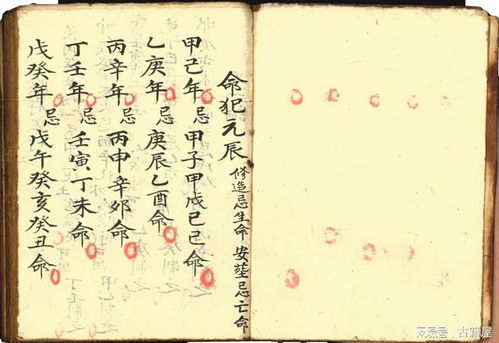 命犯元辰 修造忌生命 安葬忌亡命
甲己年忌甲子甲戌己巳命
乙庚年忌庚辰乙酉命
丙辛年忌丙申辛卯命
丁壬年忌壬寅丁未命
戊癸年忌戊午癸亥癸丑命
古籍屋